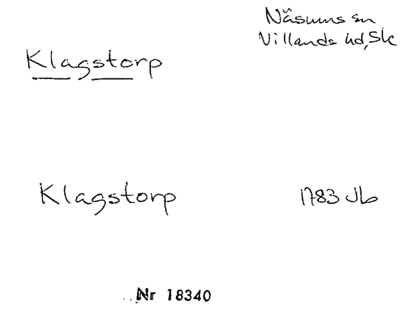 Näsums sn
Villands hd, Sk
Klagstorp
Klagstorp 1783 Jb
Nr 18340